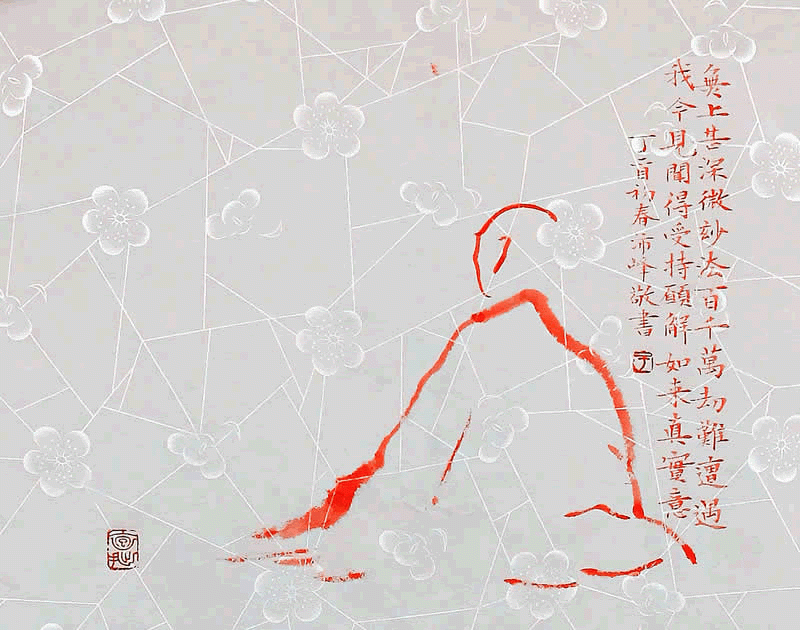 無上甚深微玅法百千萬劫難遭遇
我今見聞得受持願解如来真實意
丁酉初春沛峰敬書